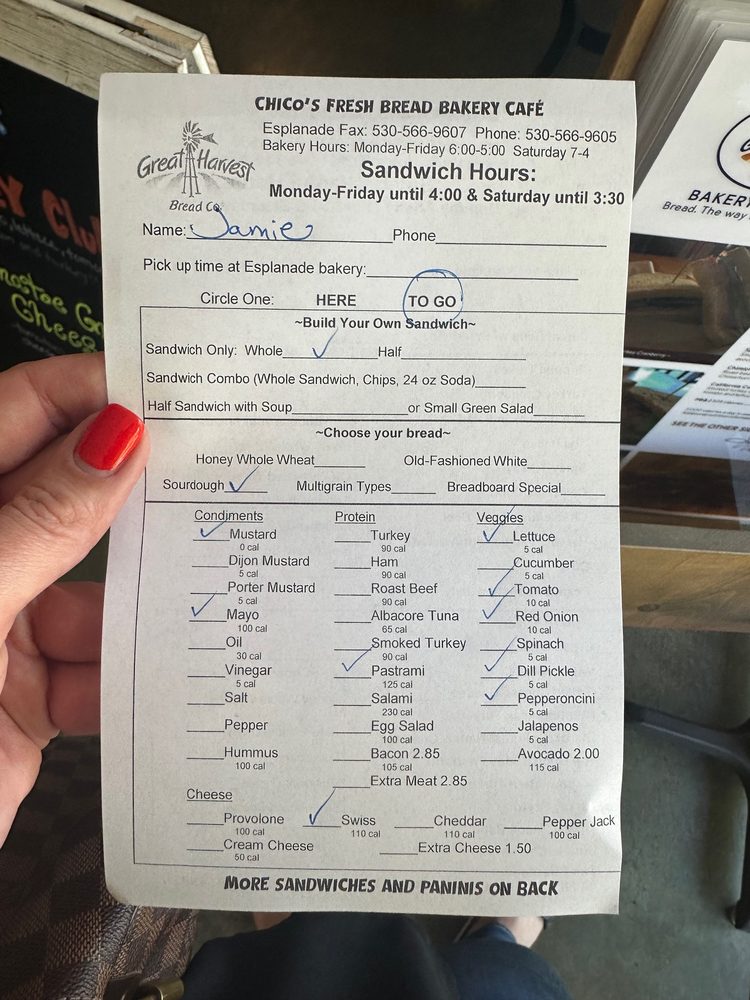 CHICO'S FRESH BREAD BAKERY CAFÉ
Esplanade Fax: 530-566-9607 Phone: 530-566-9605
Bakery Hours: Monday-Friday 6:00-5:00 Saturday 7-4
Great Harvest
Bread Co.
Sandwich Hours:
Monday-Friday until 4:00 & Saturday until 3:30
Name: Jamie Phone
Pick up time at Esplanade bakery:
Circle One: HERE TO GO
~Build Your Own Sandwich~
Sandwich Only: Whole ✓ Half
Sandwich Combo (Whole Sandwich, Chips, 24 oz Soda)
Half Sandwich with Soup or Small Green Salad
~Choose your bread~
Honey Whole Wheat Old-Fashioned White
Sourdough ✓ Multigrain Types Breadboard Special
Condiments Protein Veggies
✓ Mustard Turkey ✓ Lettuce
0 cal 90 cal 5 cal
Dijon Mustard Ham Cucumber
5 cal 90 cal 5 cal
Porter Mustard Roast Beef ✓ Tomato
5 cal 90 cal 10 cal
✓ Mayo Albacore Tuna ✓ Red Onion
100 cal 65 cal 10 cal
Oil Smoked Turkey Spinach
30 cal 90 cal 5 cal
Vinegar ✓ Pastrami ✓ Dill Pickle
5 cal 125 cal 5 cal
Salt Salami ✓ Pepperoncini
230 cal 5 cal
Pepper Egg Salad Jalapenos
100 cal 5 cal
Hummus Bacon 2.85 Avocado 2.00
100 cal 105 cal 115 cal
Extra Meat 2.85
Cheese
Provolone ✓ Swiss Cheddar Pepper Jack
100 cal 110 cal 110 cal 100 cal
Cream Cheese Extra Cheese 1.50
50 cal
MORE SANDWICHES AND PANINIS ON BACK
BAKERY
Bread. The way
SEE THE OTHER